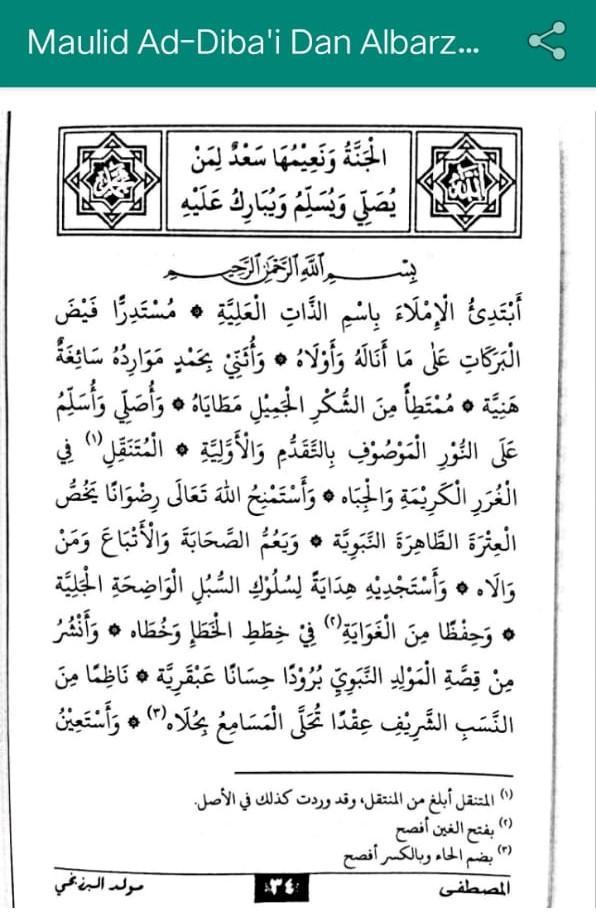 Maulid Ad-Diba'i Dan Albarz...
الْجَنَّةُ وَنَعِيْمُهَا سَعْدٌ لِمَنْ
يُصَلِّي وَيُسَلِّمُ وَيُبَارِكُ عَلَيْهِ
محمد
الله
بِسْمِ اللَّهِ الرَّحْمَنِ الرَّحِيمِ
أَبْتَدِئُ الْإِمْلَاءَ بِاسْمِ الذَّاتِ الْعَلِيَّةِ ۞ مُسْتَدِرًّا فَيْضَ
الْبَرَكَاتِ عَلَى مَا أَنَالَهُ وَأَوْلَاهُ ۞ وَأُثَنِّيْ بِحَمْدٍ مَوَارِدُهُ سَائِغَةٌ
هَنِيَّة ۞ مُمْتَطِأً مِنَ الشُّكْرِ الْجَمِيْلِ مَطَايَاهُ ۞ وَأُصَلِّي وَأُسَلِّمُ
عَلَى النُّوْرِ الْمَوْصُوْفِ بِالتَّقَدُّمِ وَالْأَوَّلِيَّةِ ۞ الْمُتَنَقِّلِ(١) فِي
الْغُرَرِ الْكَرِيْمَةِ وَالْجِبَاه ۞ وَأَسْتَمْنِحُ اللهَ تَعَالَى رِضْوَانًا يَخُصُّ
الْعِتْرَةَ الطَّاهِرَةَ النَّبَوِيَّة ۞ وَيَعُمُّ الصَّحَابَةَ وَالْأَتْبَاعَ وَمَنْ
وَالَاه ۞ وَأَسْتَجْدِيْهِ هِدَايَةً لِسُلُوْكِ السُّبُلِ الْوَاضِحَةِ الْجَلِيَّة
۞ وَحِفْظًا مِنَ الْغَوَايَةِ(٢) فِيْ خِطَطِ الْخَطَإِ وَخُطَاه ۞ وَأَنْشُرُ
مِنْ قِصَّةِ الْمَوْلِدِ النَّبَوِيِّ بُرُوْدًا حِسَانًا عَبْقَرِيَّة ۞ نَاظِمًا مِنَ
النَّسَبِ الشَّرِيْفِ عِقْدًا تُحَلَّى الْمَسَامِعُ بِحُلَاه(٣) ۞ وَأَسْتَعِيْنُ
(١) المتنقل أبلغ من المنتقل، وقد وردت كذلك في الأصل.
(٢) بفتح الغين أفصح
(٣) بضم الحاء وبالكسر أفصح
المصطفى
٣٤
مولد البرزنجي